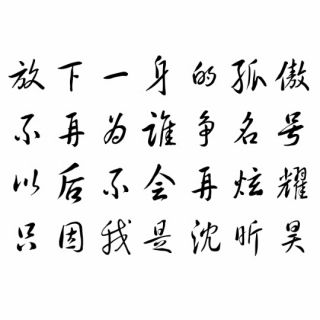 放下一身的孤傲
不再为谁争名号
以后不会再炫耀
只因我是沈昕昊